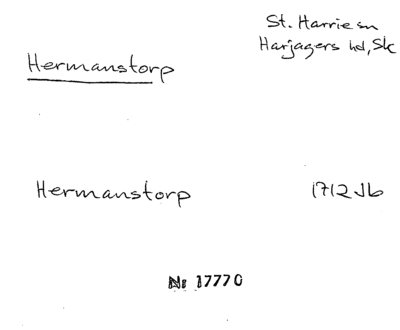 St. Harrie sn
Harjagers hd, Sk
Hermanstorp
Hermanstorp 1712 Jb
Nr 17770